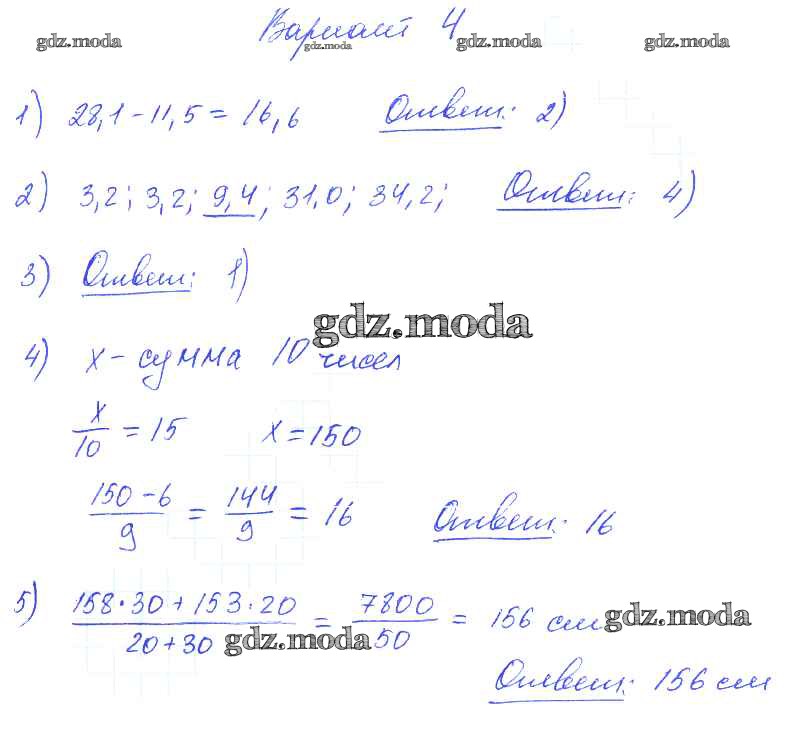 Вариант 4
gdz.moda gdz.moda gdz.moda gdz.moda
1) 28,1 - 11,5 = 16,6 Ответ: 2)
2) 3,2; 3,2; 9,4; 31,0; 34,2; Ответ: 4)
3) Ответ: 1)
gdz.moda
4) x - сумма 10 чисел
x/10 = 15 x = 150
(150 - 6)/9 = 144/9 = 16 Ответ: 16
5) (158·30 + 153·20)/(20 + 30) = 7800/50 = 156 см
gdz.moda gdz.moda
Ответ: 156 см